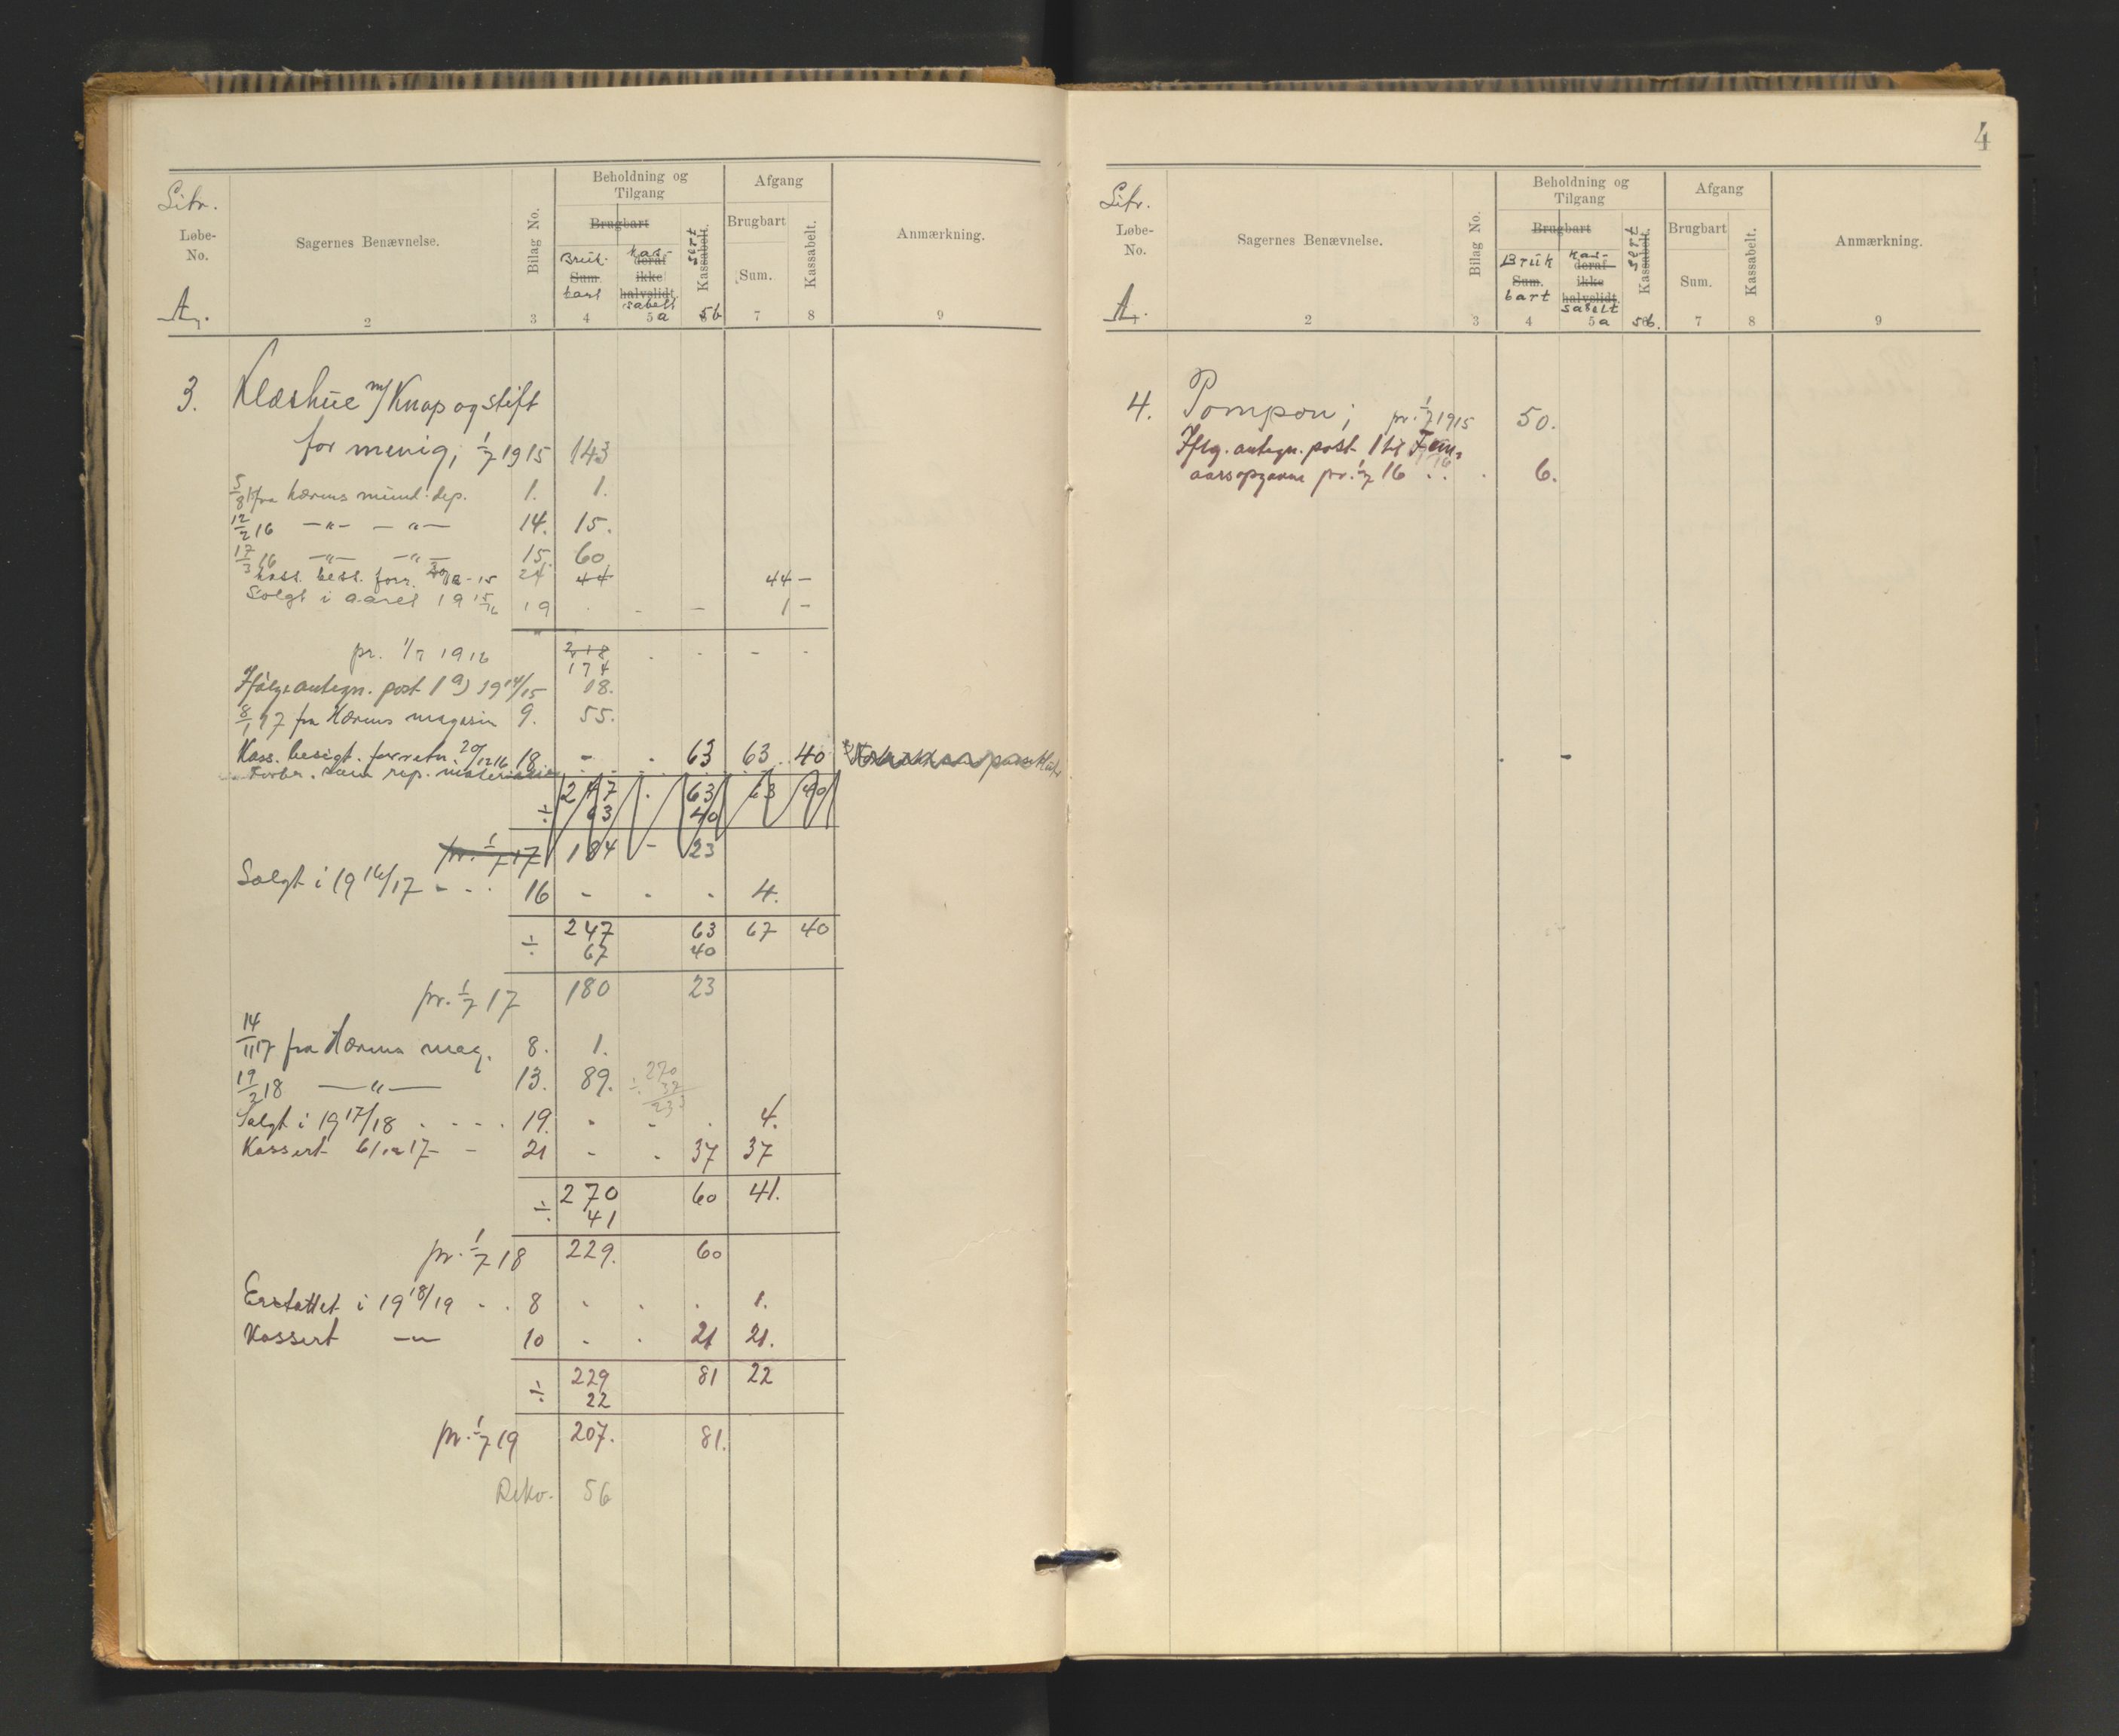 Litr.
Løbe-
No.
A.
Sagernes Benævnelse.
2
Bilag No.
3
Beholdning og
Tilgang
Brugbart
Bruk-
Sum.
bart
4
kas-
deraf
ikke
halvslidt.
sabelt
5 a
Kassabelt.
sert
5b
Afgang
Brugbart
Sum.
7
Kassabelt.
8
Anmærkning.
9
3. Klæshue m/ Knap og stift
for menig; 1/7 1915 143
5/8 15 fra hærens mund. dep. 1. 1.
12/2 16 —"— —"— 14. 15.
17/3 16 —"— —"— 15. 60
kass. besi. forr. 12-15 24 44 44 —
Solgt i aaret 19 15/16 19 . - — 1 —
pr. 1/7 1916 218 . - - .
174
Ifølge antegn. post 1 a) 19 14/15 18.
8/1 17 fra Hærens magasin 9. 55.
Kass. besigt. forretn. 20/12 16 18 - . 63 63 40
Forbr. som rep. materialier
247 . 63 63 40
÷ 63 40
pr. 1/7 17 184 - 23
Solgt i 19 16/17 - - . 16 - - - 4.
247 63 67 40
÷ 67 40
pr. 1/7 17 180 23
14/11 17 fra Hærens mag. 8. 1.
19/2 18 —"— 13. 89.
270
÷ 37
233
Solgt i 19 17/18 . - - . 19. - - . 4.
Kassert 6/12 17 - - 21 - - 37 37
270 60 41.
÷ 41
pr. 1/7 18 229. 60
Erstattet i 19 18/19 - . 8 . . . 1.
Kassert —"— 10 . . 21 21.
229 81 22
÷ 22
pr. 1/7 19 207. 81.
Rekv. 56
4
Litr.
Løbe-
No.
A.
Sagernes Benævnelse.
2
Bilag No.
3
Beholdning og
Tilgang
Brugbart
Bruk
Sum.
bart
4
kas-
deraf
ikke
halvslidt.
sabelt
5 a
Kassabelt.
sert
5b.
Afgang
Brugbart
Sum.
7
Kassabelt.
8
Anmærkning.
9
4. Pompon; pr. 1/7 1915 50.
Iflg. antegn. post 1 til Fem-
aarsopgaven pr. 1/7 16 . . . 6.